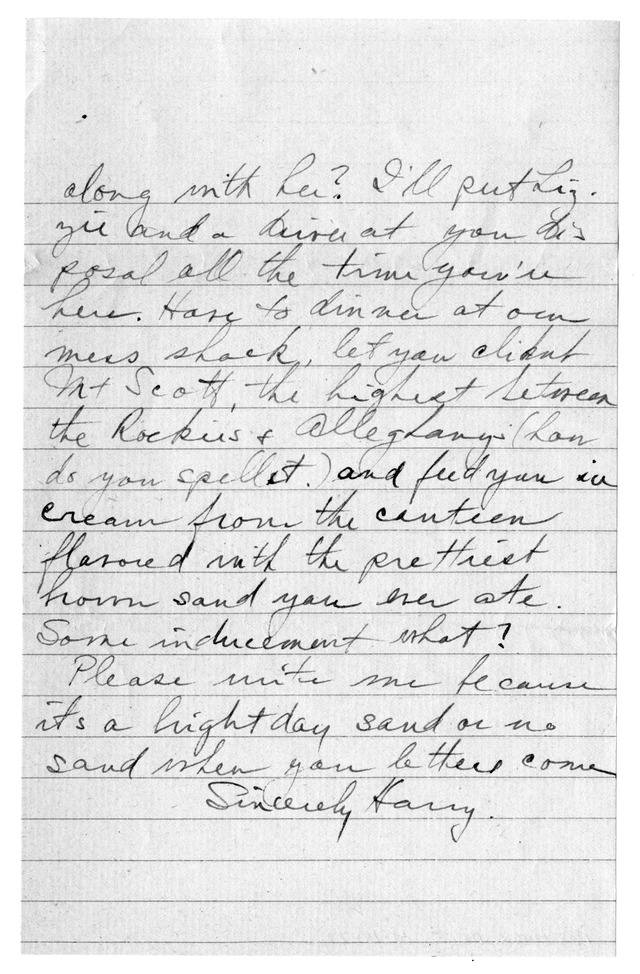 along with her? I'll put Liz-
zie and a driver at you dis
posal all the time you're
here. Have to dinner at our
mess shack, let you climb
Mt Scott, the highest between
the Rockies & Alleghanys (how
do you spell it.) and feed you ice
cream from the canteen
flavored with the prettiest
brown sand you ever ate.
Some inducement what?
Please write me because
its a bright day sand or no
sand when you letters come
Sincerely Harry.